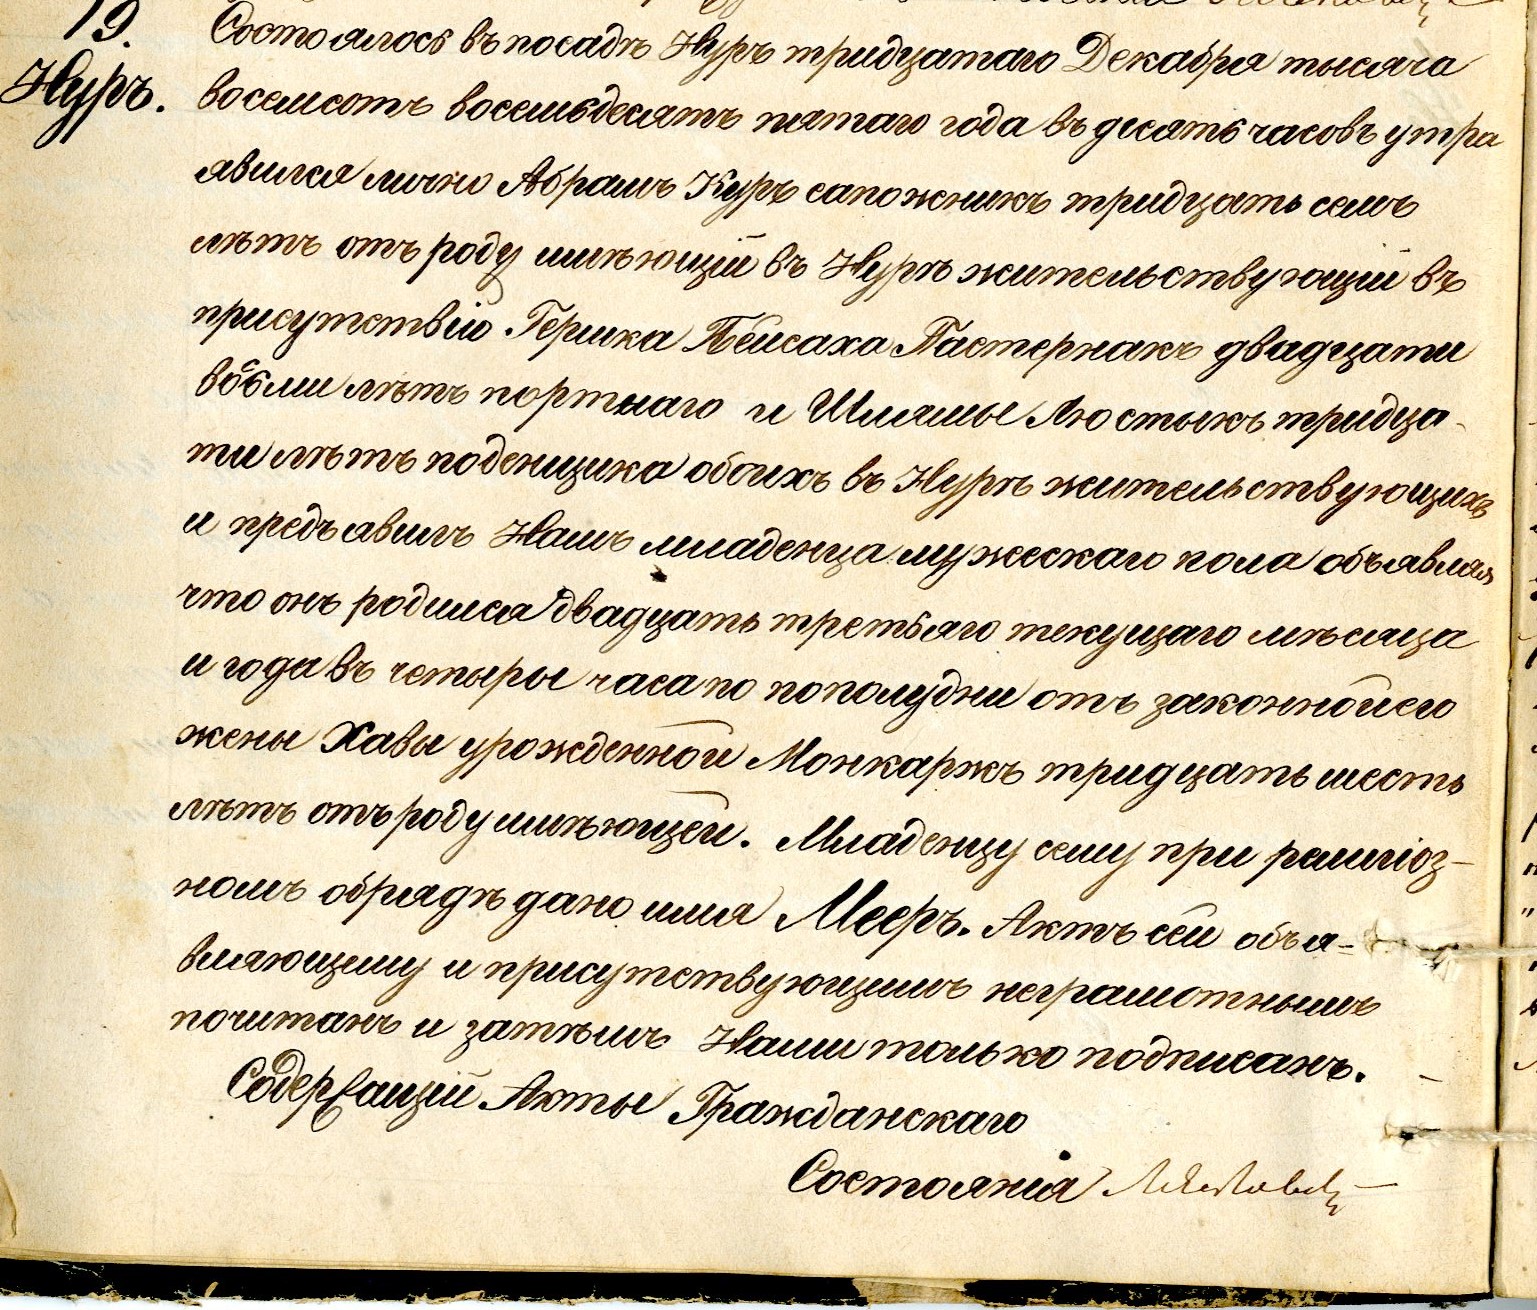 19.
Нуръ.
Состоялось въ посадѣ Нуръ тридцатаго Декабря тысяча
восемсотъ восемьдесятъ пятаго года въ десять часовъ утра
явился лично Абрамъ Куръ сапожникъ тридцать семь
лѣтъ отъ роду имѣющій въ Нурѣ жительствующій въ
присутствіи Гершка Пейсаха Пастернакъ двадцати
восьми лѣтъ портнаго и Шлямы Люстыкъ тридца-
ти лѣтъ поденщика обоихъ въ Нурѣ жительствующихъ
и предъявилъ Намъ младенца мужескаго пола объявляя
что онъ родился двадцать третьяго текущаго мѣсяца
и года въ четыре часа по пополудни отъ законной его
жены Хавы урожденной Монкаржъ тридцать шесть
лѣтъ отъ роду имѣющей. Младенцу сему при религіоз-
номъ обрядѣ дано имя Мееръ. Актъ сей объя-
вляющему и присутствующимъ неграмотнымъ
почитанъ и затѣмъ Нами только подписанъ.
Содержащій Акты Гражданскаго
Состоянія